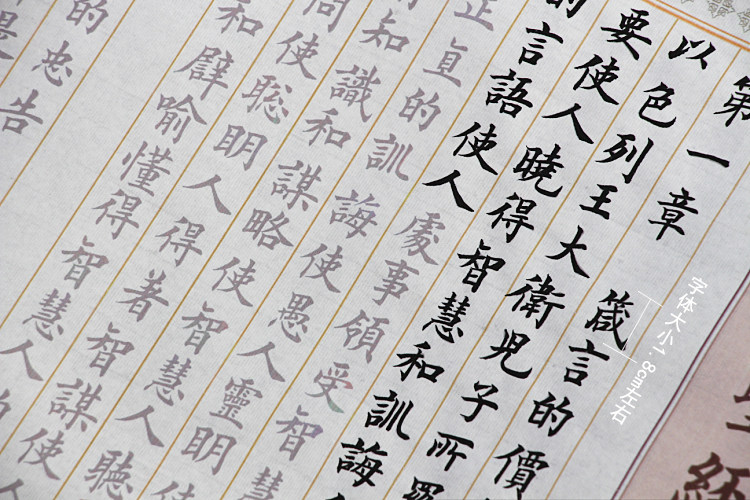 第一章 箴言的價
以色列王大衛兒子所羅
要使人曉得智慧和訓誨
言語使人處事領受智慧
正直的訓誨使愚人靈明使
知識和謀略使智慧人聽
問使聰明人得著智謀使人
和譬喻懂得智慧人的
的忠告
字体大小1.8cm左右